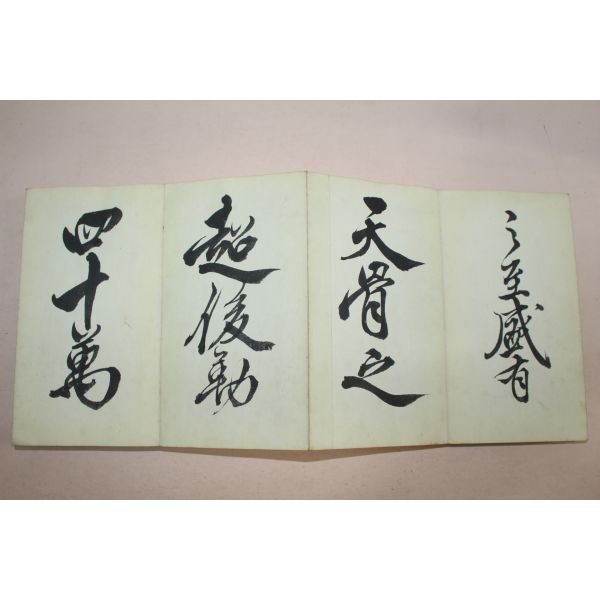 之至盛有
天骨之
超後動
四十萬